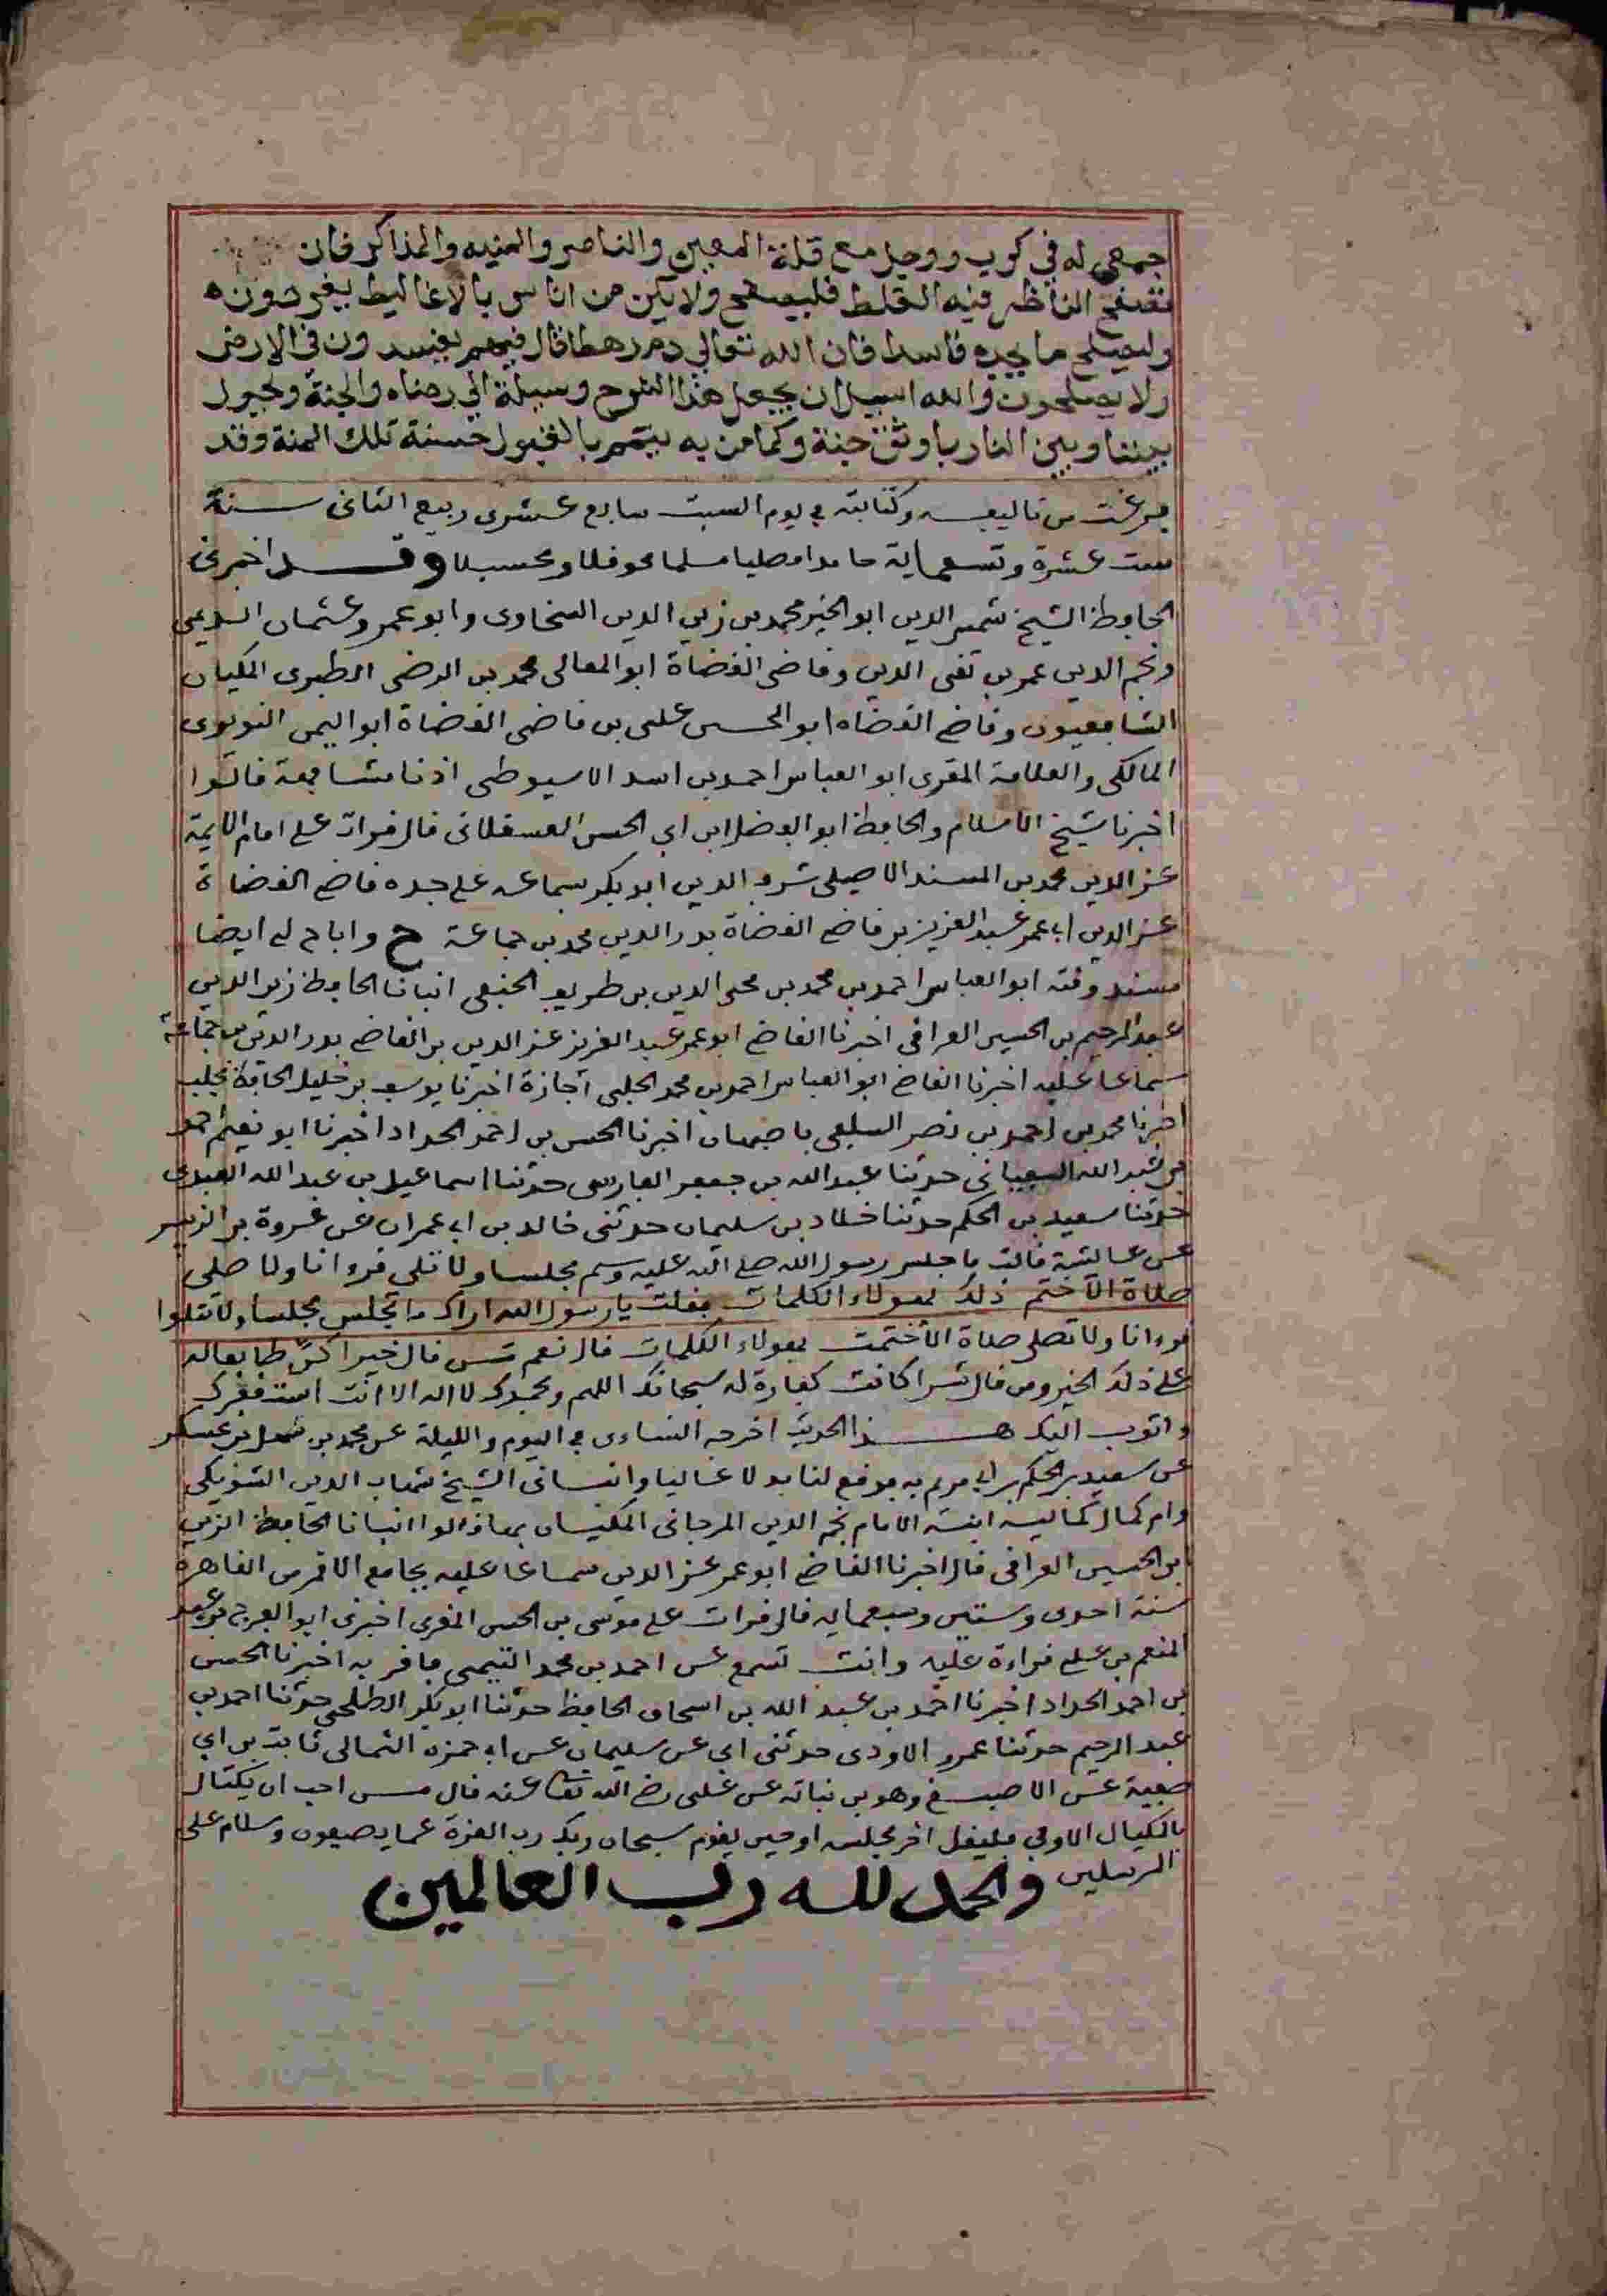 جمعي له في كرب ووجل مع قلة المعين والناصر والمنبه والمذاكر فان
تصفح الناظر فيه الغلط فليصفح ولا يكن من اناس بالاغاليط يفرحون
وليصلح ما يجده فاسدا فان الله تعالى ذم رهطا قال فيهم يفسدون في الارض
ولا يصلحون والله اسيل ان يجعل هذا الشرح وسيلة الي رضاه والجنة ويحول
بيننا وبين النار باوثق جنة وكما من به يتمم بالقبول حسنة تلك المنة وقد
فرغت من تاليفه وكتابته في يوم السبت سابع عشرى ربيع الثانى سنة
ست عشرة وتسعماية حامدا مصليا مسلما محوقلا ومحسبلا وقد اخبرني
الحافظ الشيخ شمس الدين ابو الخير محمد بن زين الدين السخاوى وابو عمرو عثمان الديمى
ونجم الدين عمر بن تقى الدين وقاضى القضاة ابو المعالى محمد بن الرضى الطبرى المكيان
الشافعيون وقاضى القضاه ابو الحسن على بن قاضى القضاة ابو اليمن النويرى
المالكى والعلامة المقرى ابو العباس احمد بن اسد الاسيوطى اذنا مشافهة قالوا
اخبرنا شيخ الاسلام والحافظ ابو الفضل ابن ابي الحسن العسقلانى قال قرات على امام الايمة
عز الدين محمد بن المسند الاصيلى شرف الدين ابو بكر بسماعه على جده قاضى القضاة
عز الدين ابى عمر عبد العزيز بن قاضى القضاة بدر الدين محمد بن جماعة ح واباح لى ايضا
مسند وقته ابو العباس احمد بن محمد بن محى الدين بن طريف الحنفى انبانا الحافظ زين الدين
عبد الرحيم بن الحسين العراقى اخبرنا القاضى ابو عمر عبد العزيز عز الدين بن القاضى بدر الدين بن جماعة
سماعا عليه اخبرنا القاضى ابو العباس احمد بن محمد الحلبى اجازة اخبرنا يوسف بن خليل الحافظ بحلب
اخبرنا محمد بن احمد بن نصر السلفى باصبهان اخبرنا الحسن بن احمد الحداد اخبرنا ابو نعيم احمد
بن عبد الله حدثنا عبد الله بن جعفر الفارسى حدثنا اسماعيل بن عبد الله العبدى
حدثنا سعيد بن الحكم حدثنا خلاد بن سليمان حدثنى خالد بن ابى عمران عن عروة بن الزبير
عن عائشة قالت ما جلس رسول الله صلى الله عليه وسلم مجلسا ولا تلى قرءانا ولا صلى
صلاة الا ختم ذلك بهولاء الكلمات فقلت يا رسول الله اراك ما تجلس مجلسا ولا تتلوا
قرءانا ولا تصلى صلاة الا ختمت بهولاء الكلمات قال نعم من قال خيرا كن طابعا له
على ذلك الخير ومن قال شرا كانت كفارة له سبحانك اللهم وبحمدك لا اله الا انت استغفرك
واتوب اليك هذا الحديث اخرجه النساءى في اليوم والليلة عن محمد بن سهل بن عسكر
عن سعيد بن الحكم بن ابى مريم به فوقع لنا بدلا عاليا وانبانى الشيخ شهاب الدين الشوبكى
وام كمال كمالية ابنة الامام نجم الدين المرجانى المكيان بها قالوا انبانا الحافظ الزين
ابن الحسين العراقى قال اخبرنا القاضى ابو عمر عز الدين سماعا عليه بجامع الاقمر من القاهرة
سنة احدى وستين وسبعماية قال قرات على موسى بن الحسن المقرى اخبرنى ابو الفرج بن عبد
المنعم بن على قراءة عليه وانت تسمع عن احمد بن محمد التيمى فاقر به اخبرنا الحسن
بن احمد الحداد اخبرنا احمد بن عبد الله بن اسحاق الحافظ حدثنا ابو بكر الطلحى حدثنا احمد بن
عبد الرحيم حدثنا عمرو الاودى حدثنى ابي عن سليمان عن ابى حمزه الثمالى ثابت بن ابي
صفية عن الاصبغ وهو بن نباته عن على رضى الله تعالى عنه قال من احب ان يكتال
بالمكيال الاوفى فليقل اخر مجلسه او حين يقوم سبحان ربك رب العزة عما يصفون وسلام على
المرسلين والحمد لله رب العالمين